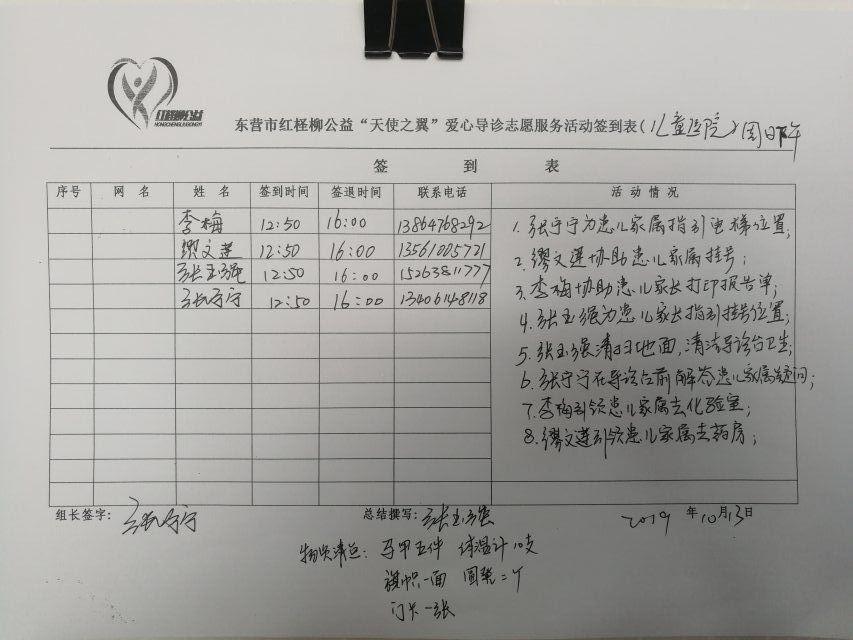 红柽柳公益
HONGCHENGLIUGONGYI
东营市红柽柳公益“天使之翼”爱心导诊志愿服务活动签到表(儿童医院)周日下午
签到表
序号 网名 姓名 签到时间 签退时间 联系电话 活动情况
李梅 12:50 16:00 13864768292
缪文莲 12:50 16:00 13561005721
张玉强 12:50 16:00 15263811777
张宁宁 12:50 16:00 13406148118
1.张宁宁为患儿家属指引电梯位置;
2.缪文莲协助患儿家属挂号;
3.李梅协助患儿家长打印报告单;
4.张玉强为患儿家长指引挂号位置;
5.张玉强清扫地面,清洁导诊台卫生;
6.张宁宁在导诊台前解答患儿家属疑问;
7.李梅引领患儿家属去化验室;
8.缪文莲引领患儿家属去药房;
组长签字: 张宁宁 总结撰写: 张玉强 2019年10月13日
物资清点: 马甲五件 体温计10支
旗帜一面 圆凳二个
门卡一张